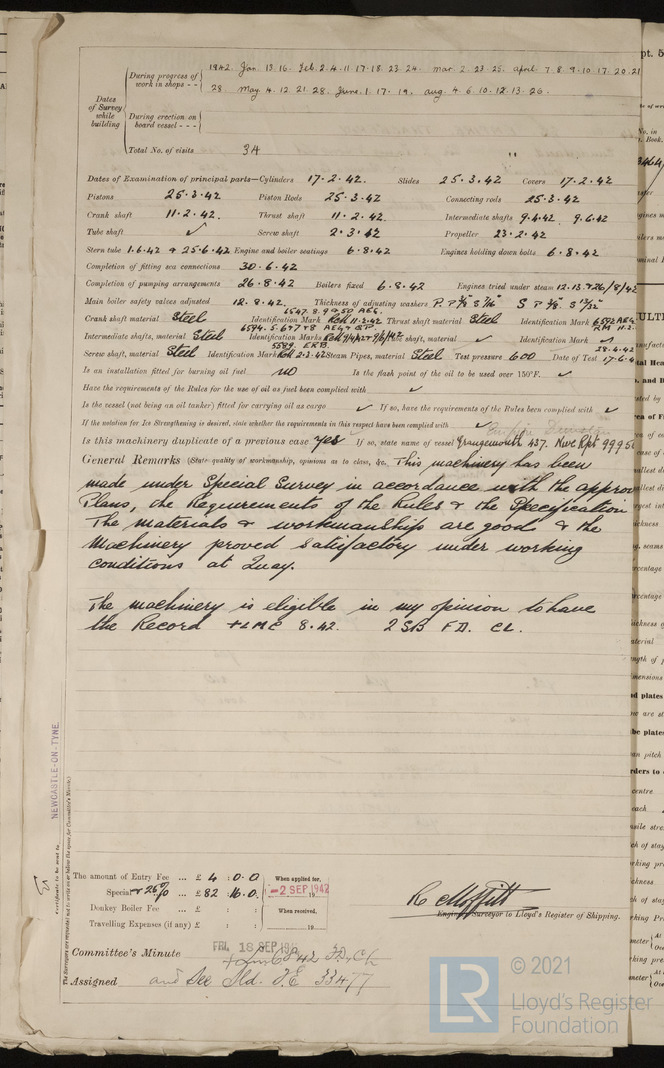 1942. Jan. 13. 16. Feb. 2. 4. 11. 17. 18. 23. 24. Mar. 2. 23. 25. April. 7. 8. 9. 10. 17. 20. 21
During progress of work in shops - -
28 May. 4. 12. 21. 28. June. 1. 17. 19. Aug. 4. 6. 10. 12. 13. 26.
Dates of Survey while building
During erection on board vessel - - -
Total No. of visits 34
Dates of Examination of principal parts—Cylinders 17.2.42. Slides 25.3.42 Covers 17.2.42
Pistons 25.3.42 Piston Rods 25.3.42 Connecting rods 25.3.42
Crank shaft 11.2.42. Thrust shaft 11.2.42. Intermediate shafts 9.4.42. 9.6.42
Tube shaft ✓ Screw shaft 2.3.42 Propeller 23.2.42
Stern tube 1.6.42 & 25.6.42 Engine and boiler seatings 6.8.42 Engines holding down bolts 6.8.42
Completion of fitting sea connections 30.6.42
Completion of pumping arrangements 26.8.42 Boilers fixed 6.8.42 Engines tried under steam 12.13.&26/8/42
Main boiler safety valves adjusted 12.8.42. Thickness of adjusting washers
Crank shaft material Steel Identification Mark Thrust shaft material Steel Identification Mark
Intermediate shafts, material Steel Identification Marks Tube shaft, material ✓ Identification Mark ✓
Screw shaft, material Steel Identification Mark 5589. ERB. 2.3.42 Steam Pipes, material Steel Test pressure 600 Date of Test 28.4.42 17.6.4
Is an installation fitted for burning oil fuel no Is the flash point of the oil to be used over 150°F. ✓
Have the requirements of the Rules for the use of oil as fuel been complied with ✓
Is the vessel (not being an oil tanker) fitted for carrying oil as cargo ✓ If so, have the requirements of the Rules been complied with ✓
If the notation for Ice Strengthening is desired, state whether the requirements in this respect have been complied with ✓
Empire
Is this machinery duplicate of a previous case yes If so, state name of vessel Grangemouth 437. Nwc Rpt 9995
General Remarks (State quality of workmanship, opinions as to class, &c. This machinery has been
made under Special Survey in accordance with the approv
Plans, the Requirements of the Rules & the Specification
The materials & workmanship are good & the
Machinery proved satisfactory under working
conditions at Quay.
The machinery is eligible in my opinion to have
the Record +LMC 8.42. 2SB FD. CL.
NEWCASTLE-ON-TYNE.
Certificate to be sent to
(The Surveyors are requested not to write on or below the space for Committee's Minute.)
The amount of Entry Fee ... £ 4 : 0.0 When applied for,
Special & 25% ... £ 82 : 16.0. -2 SEP 1942
Donkey Boiler Fee ... £ : : When received,
Travelling Expenses (if any) £ : : 19
R. Moffitt
Engineer Surveyor to Lloyd's Register of Shipping.
Committee's Minute FRI. 18 SEP 19
+ Lmc 8.42 FD. CL
Assigned and see Sld. F.E 33477
LR © 2021
Lloyd's Register
Foundation